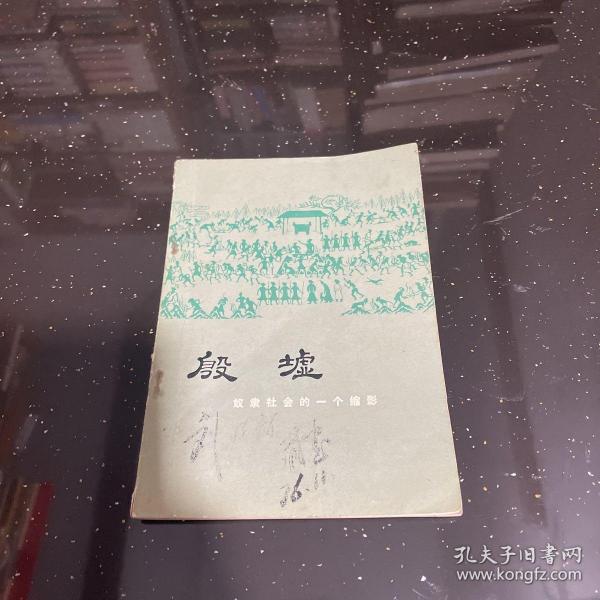 殷墟
奴隶社会的一个缩影
孔夫子旧书网
www.kongfz.com